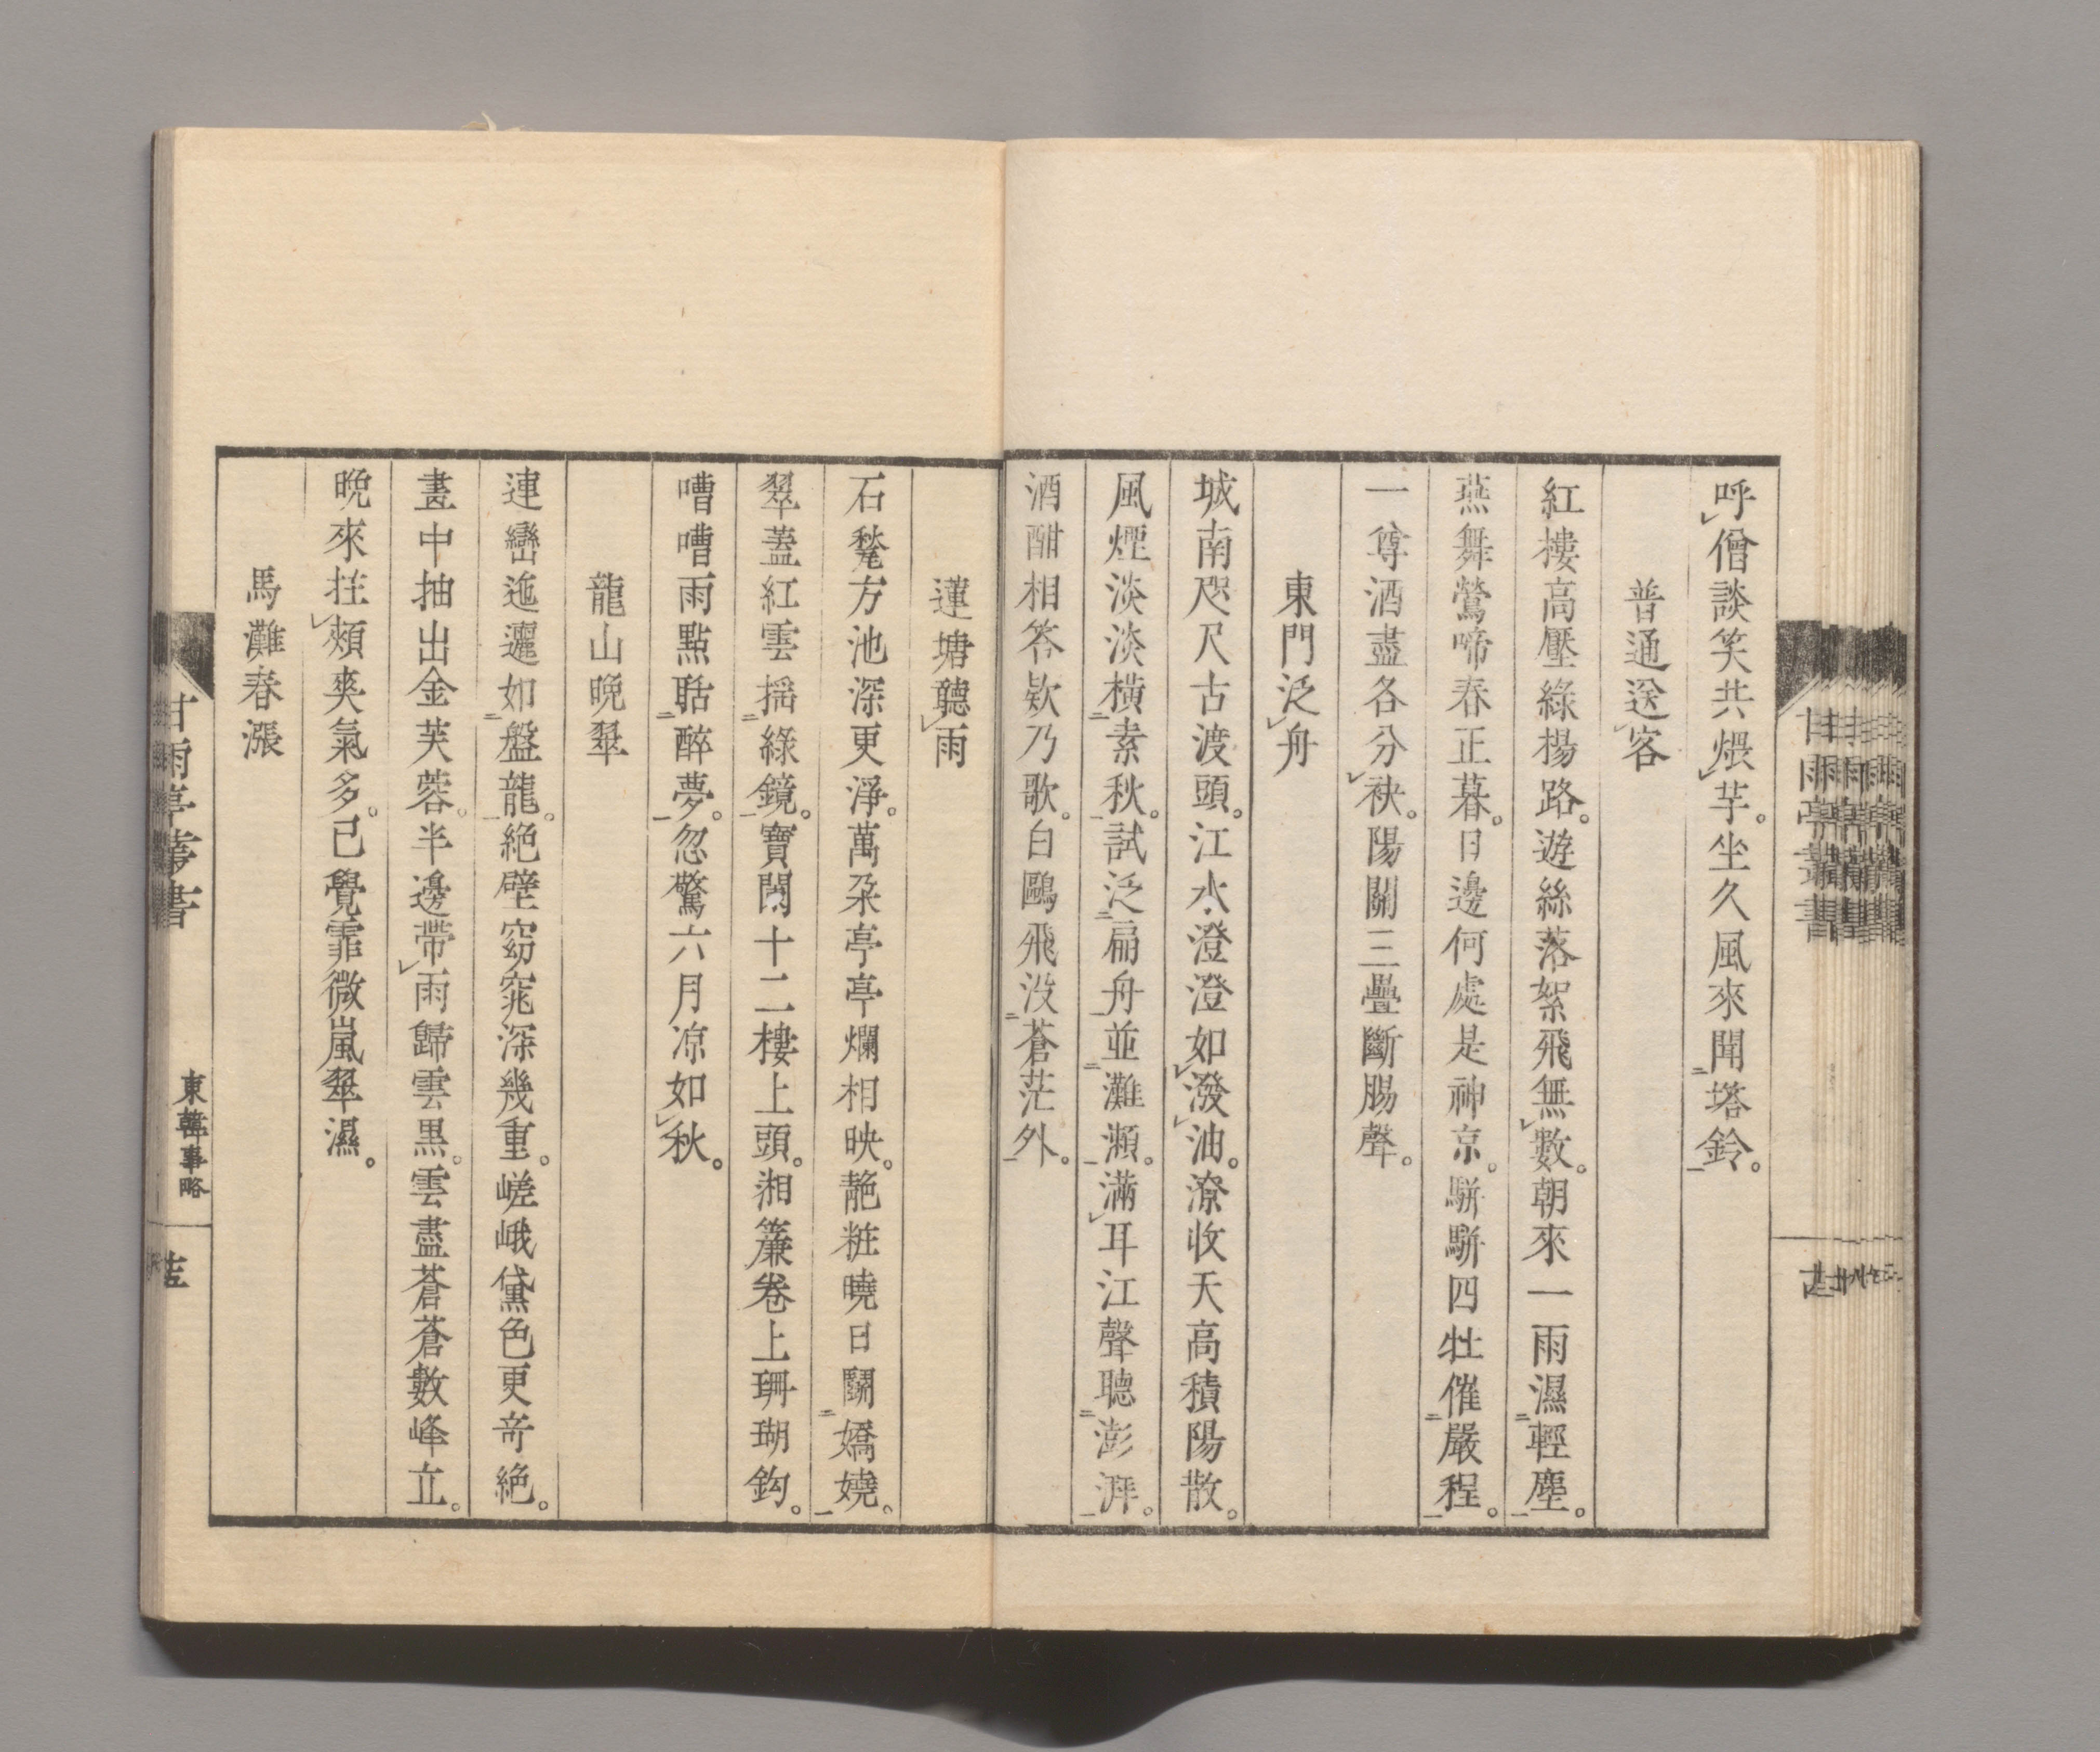 呼僧談笑共煨芋。坐久風來聞塔鈴。
普通送客
紅樓高壓綠楊路。遊絲落絮飛無數。朝來一雨濕輕塵。
燕舞鶯啼春正暮。日邊何處是神京。騈騈四牡催嚴程。
一尊酒盡各分袂。陽關三疊斷腸聲。
東門泛舟
城南咫尺古渡頭。江水澄澄如潑油。潦收天高積陽散。
風煙淡淡橫素秋。試泛扁舟並灘瀨。滿耳江聲聽澎湃。
酒酣相答欸乃歌。白鷗飛沒蒼茫外。
蓮塘聽雨
石甃方池深更淨。萬朶亭亭爛相映。靘粧曉日鬭嬌嬈。
翠蓋紅雲搖綠鏡。寶閣十二樓上頭。湘簾卷上珊瑚鈎。
嘈嘈雨點聒醉夢。忽驚六月凉如秋。
龍山晩翠
連巒迤邐如盤龍。絕壁窈窕深幾重。嵯峨黛色更奇絕。
畫中抽出金芙蓉。半邊帶雨歸雲黑。雲盡蒼蒼數峰立。
晩來拄頰爽氣多。已覺霏微嵐翠濕。
馬灘春漲
甘雨亭叢書
東韓事略